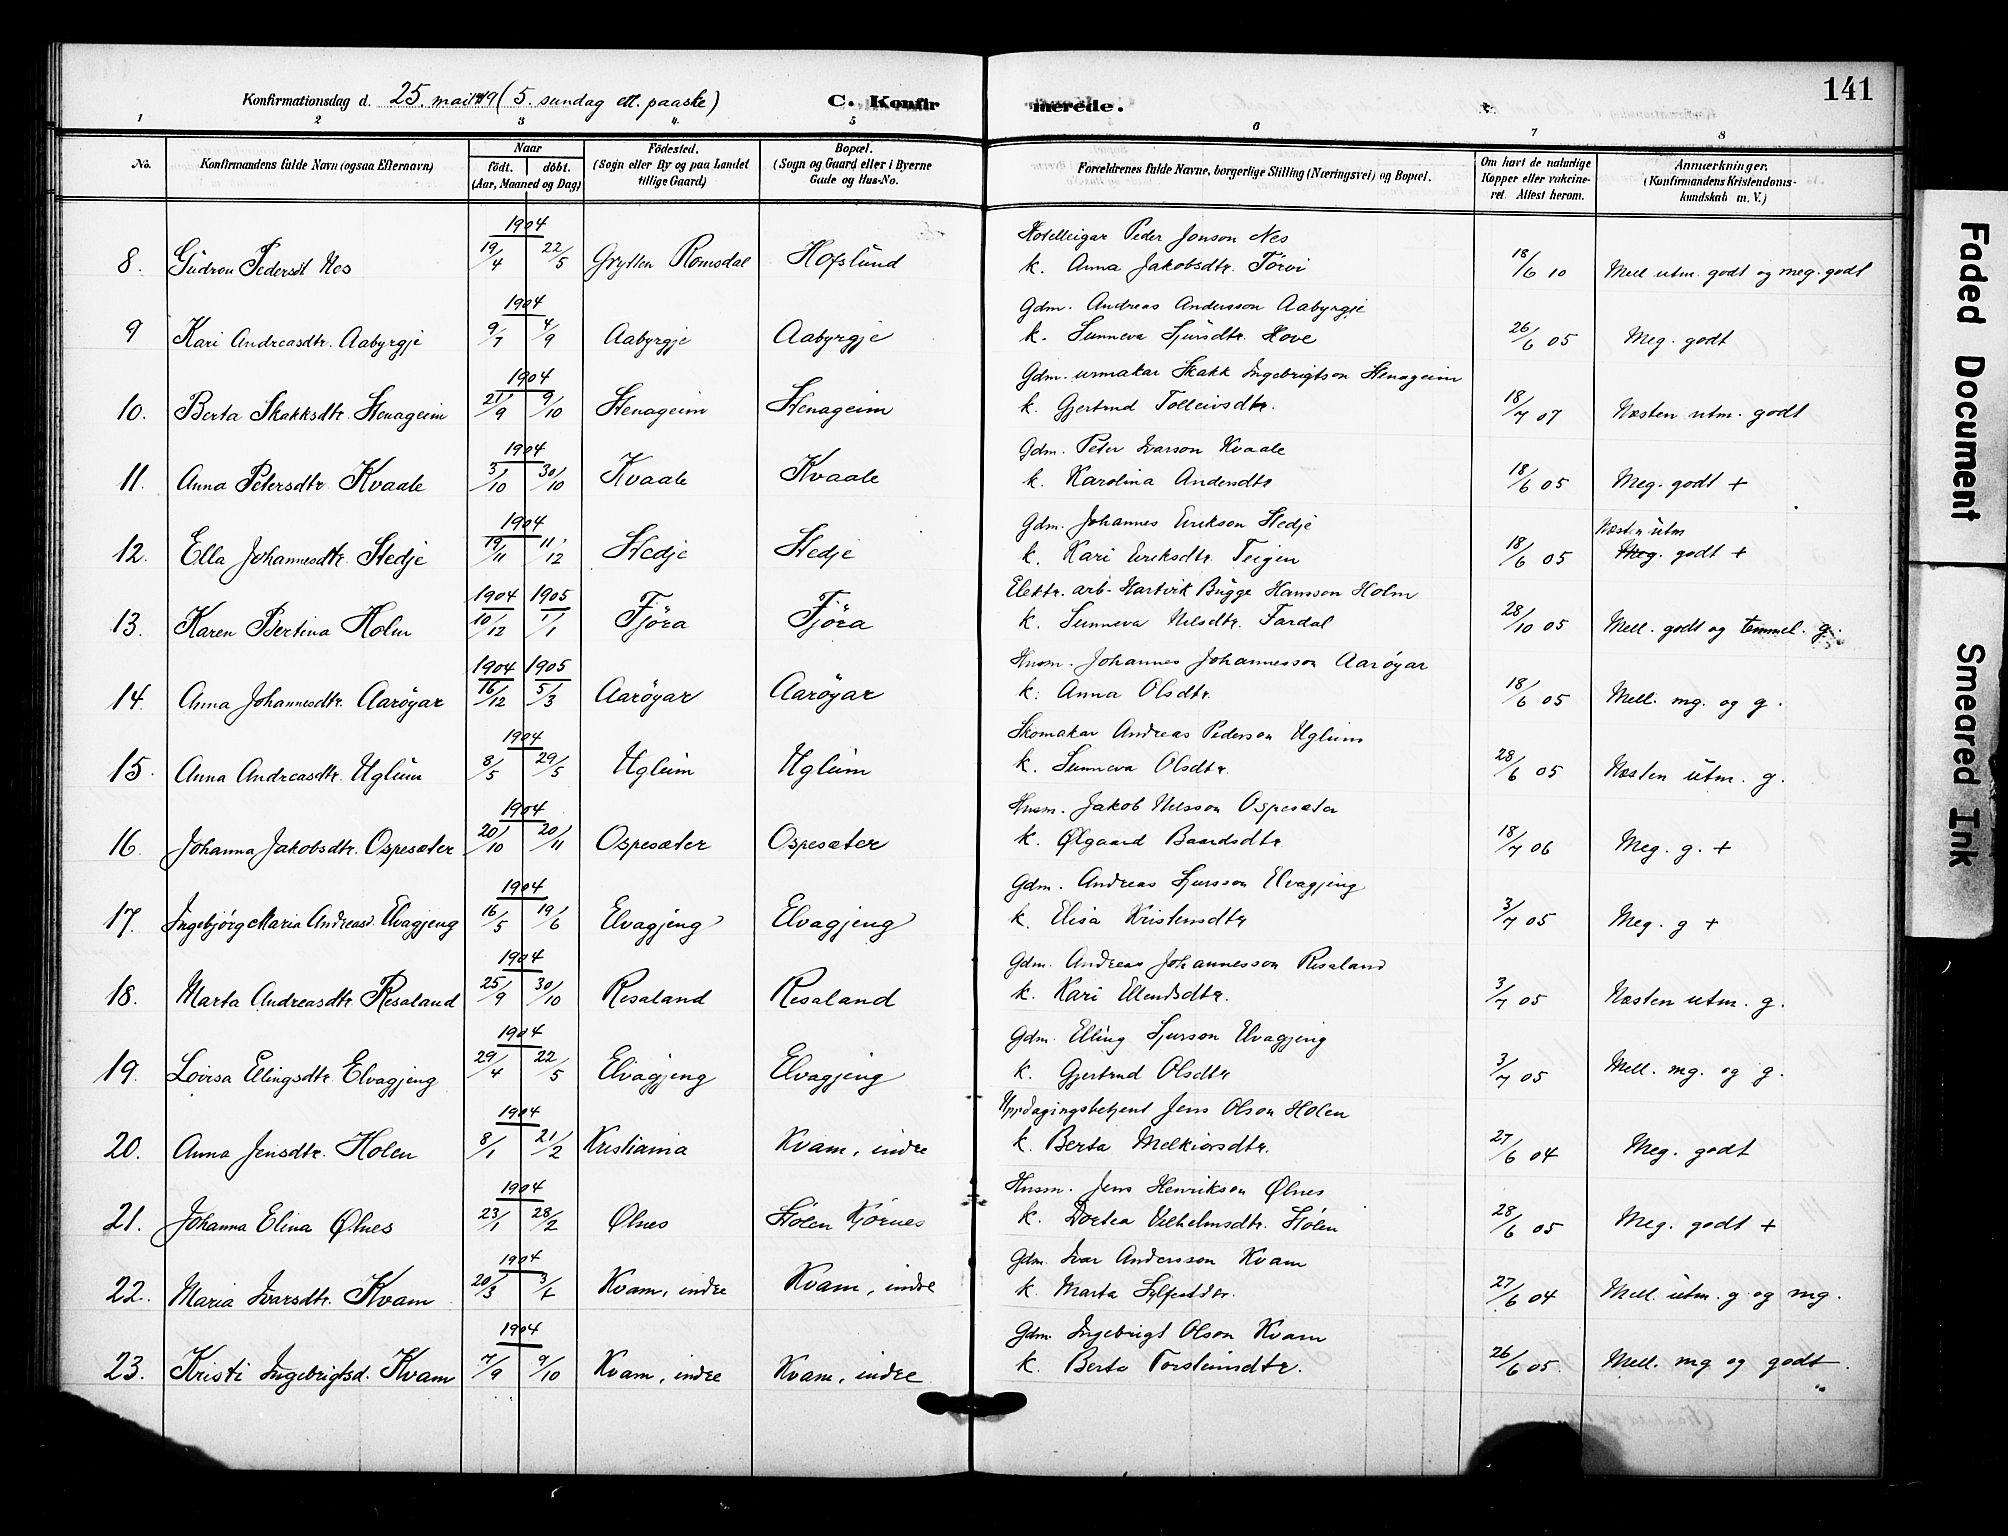 141
Konfirmationsdag d. 25. mai 1919 (5. sundag ett. paaske) C. Konfirmerede.
1 2 3 4. 5 6 7 8
No. Konfirmandens fulde Navn (ogsaa Efternavn) Naar født. døbt. (Aar, Maaned og Dag) Fødested. (Sogn eller By og paa Landet tillige Gaard) Bopæl. (Sogn og Gaard eller i Byerne Gade og Hus-No. Forældrenes fulde Navne, borgerlige Stilling (Næringsvei) og Bopæl. Om havt de naturlige Kopper eller vakcineret. Attest herom. Anmærkninger. (Konfirmandens Kristendomskundskab m. V.)
1904 Hotelleigar Peder Jonson Nes
8. Gudron Pedersdt Nes 19/4 22/5 Grytten Romsdal Hofslund k. Anna Jakobsdtr. Törvi 18/6 10 Mell utm. godt og meg. godt
1904 Gdm. Andreas Andersson Aabyrgje
9 Kari Andreasdtr. Aabyrgje 9/7 4/9 Aabyrgje Aabyrgje k. Sunneva Sjursdtr. Hove 26/6 05 Meg. godt
1904 Gdm. urmakar Skakk Ingebrigtson Stenageim
10. Berta Skakksdtr. Stenageim 21/9 9/10 Stenageim Stenageim k. Gjertrud Tolleivsdtr. 18/7 07 Næsten utm. godt
1904 Gdm. Peter Ivarson Kvaale
11. Anna Petersdtr Kvaale 3/10 30/10 Kvaale Kvaale k. Karolina Andersdtr 18/6 05 Meg. godt +
1904 Gdm. Johannes Erikson Stedje Næsten utm
12. Ella Johannesdtr. Stedje 19/11 11/12 Stedje Stedje k. Kari Eriksdtr. Teigen 18/6 05 Meg. godt +
1904 1905 Elektr. arb. Hartvik Bugge Hansson Holm
13. Karen Bertina Holm 10/12 1/1 Fjöra Fjöra k. Sunneva Nilsdtr. Fardal 28/10 05 Mell. godt og temmel. g.
1904 1905 Husm. Johannes Johannesson Aaröyar
14. Anna Johannesdtr. Aaröyar 16/12 5/3 Aaröyar Aaröyar k. Anna Olsdtr. 18/6 05 Mell. mg. og g.
1904 Skomakar Andreas Pederson Uglum
15. Anna Andreasdtr. Uglum 8/5 29/5 Uglum Uglum k. Sunneva Olsdtr. 28/6 05 Næsten utm. g.
1904 Husm. Jakob Nilsson Ospesæter
16. Johanna Jakobsdtr. Ospesæter 20/10 20/11 Ospesæter Ospesæter k. Ølgaard Baardsdtr 18/7 06 Meg. g. +
1904 Gdm. Andreas Sjursson Elvagjeng
17. Ingebjörg Maria Andreasd. Elvagjeng 16/5 19/6 Elvagjeng Elvagjeng k. Elisa Kristensdtr 3/7 05 Meg. g +
1904 Gdm. Andreas Johannesson Risaland
18. Marta Andreasdtr Risaland 25/9 30/10 Risaland Risaland k. Kari Ellendsdtr. 3/7 05 Næsten utm. g.
1904 Gdm. Elling Sjurson Elvagjeng
19. Lovisa Ellingsdtr. Elvagjeng 29/4 22/5 Elvagjeng Elvagjeng k. Gjertrud Olsdtr 3/7 05 Mell. mg. og g.
1904 Uppdagingsbetjent Jens Olson Holen
20. Anna Jensdtr. Holen 8/1 21/2 Kristiania Kvam, indre k. Berta Melkiorsdtr. 27/6 04 Meg. godt
1904 Husm. Jens Henrikson Ølnes
21. Johanna Elina Ølnes 23/1 28/2 Ølnes Stölen Kjörnes k. Dortea Vilhelmsdtr. Stölen 28/6 05 Meg. godt +
1904 Gdm. Ivar Andersson Kvam
22. Maria Ivarsdtr. Kvam 20/3 Kvam, indre Kvam, indre k. Marta 27/6 04 Mell. utm. g og mg.
1904 Gdm. Ingebrigt Olson Kvam
23. Kristi Ingebrigtsd. Kvam 7/9 9/10 Kvam, indre Kvam, indre k. Berta Torsteinsdtr. 26/6 05. Mell. mg og godt.
Faded Document
Smeared Ink